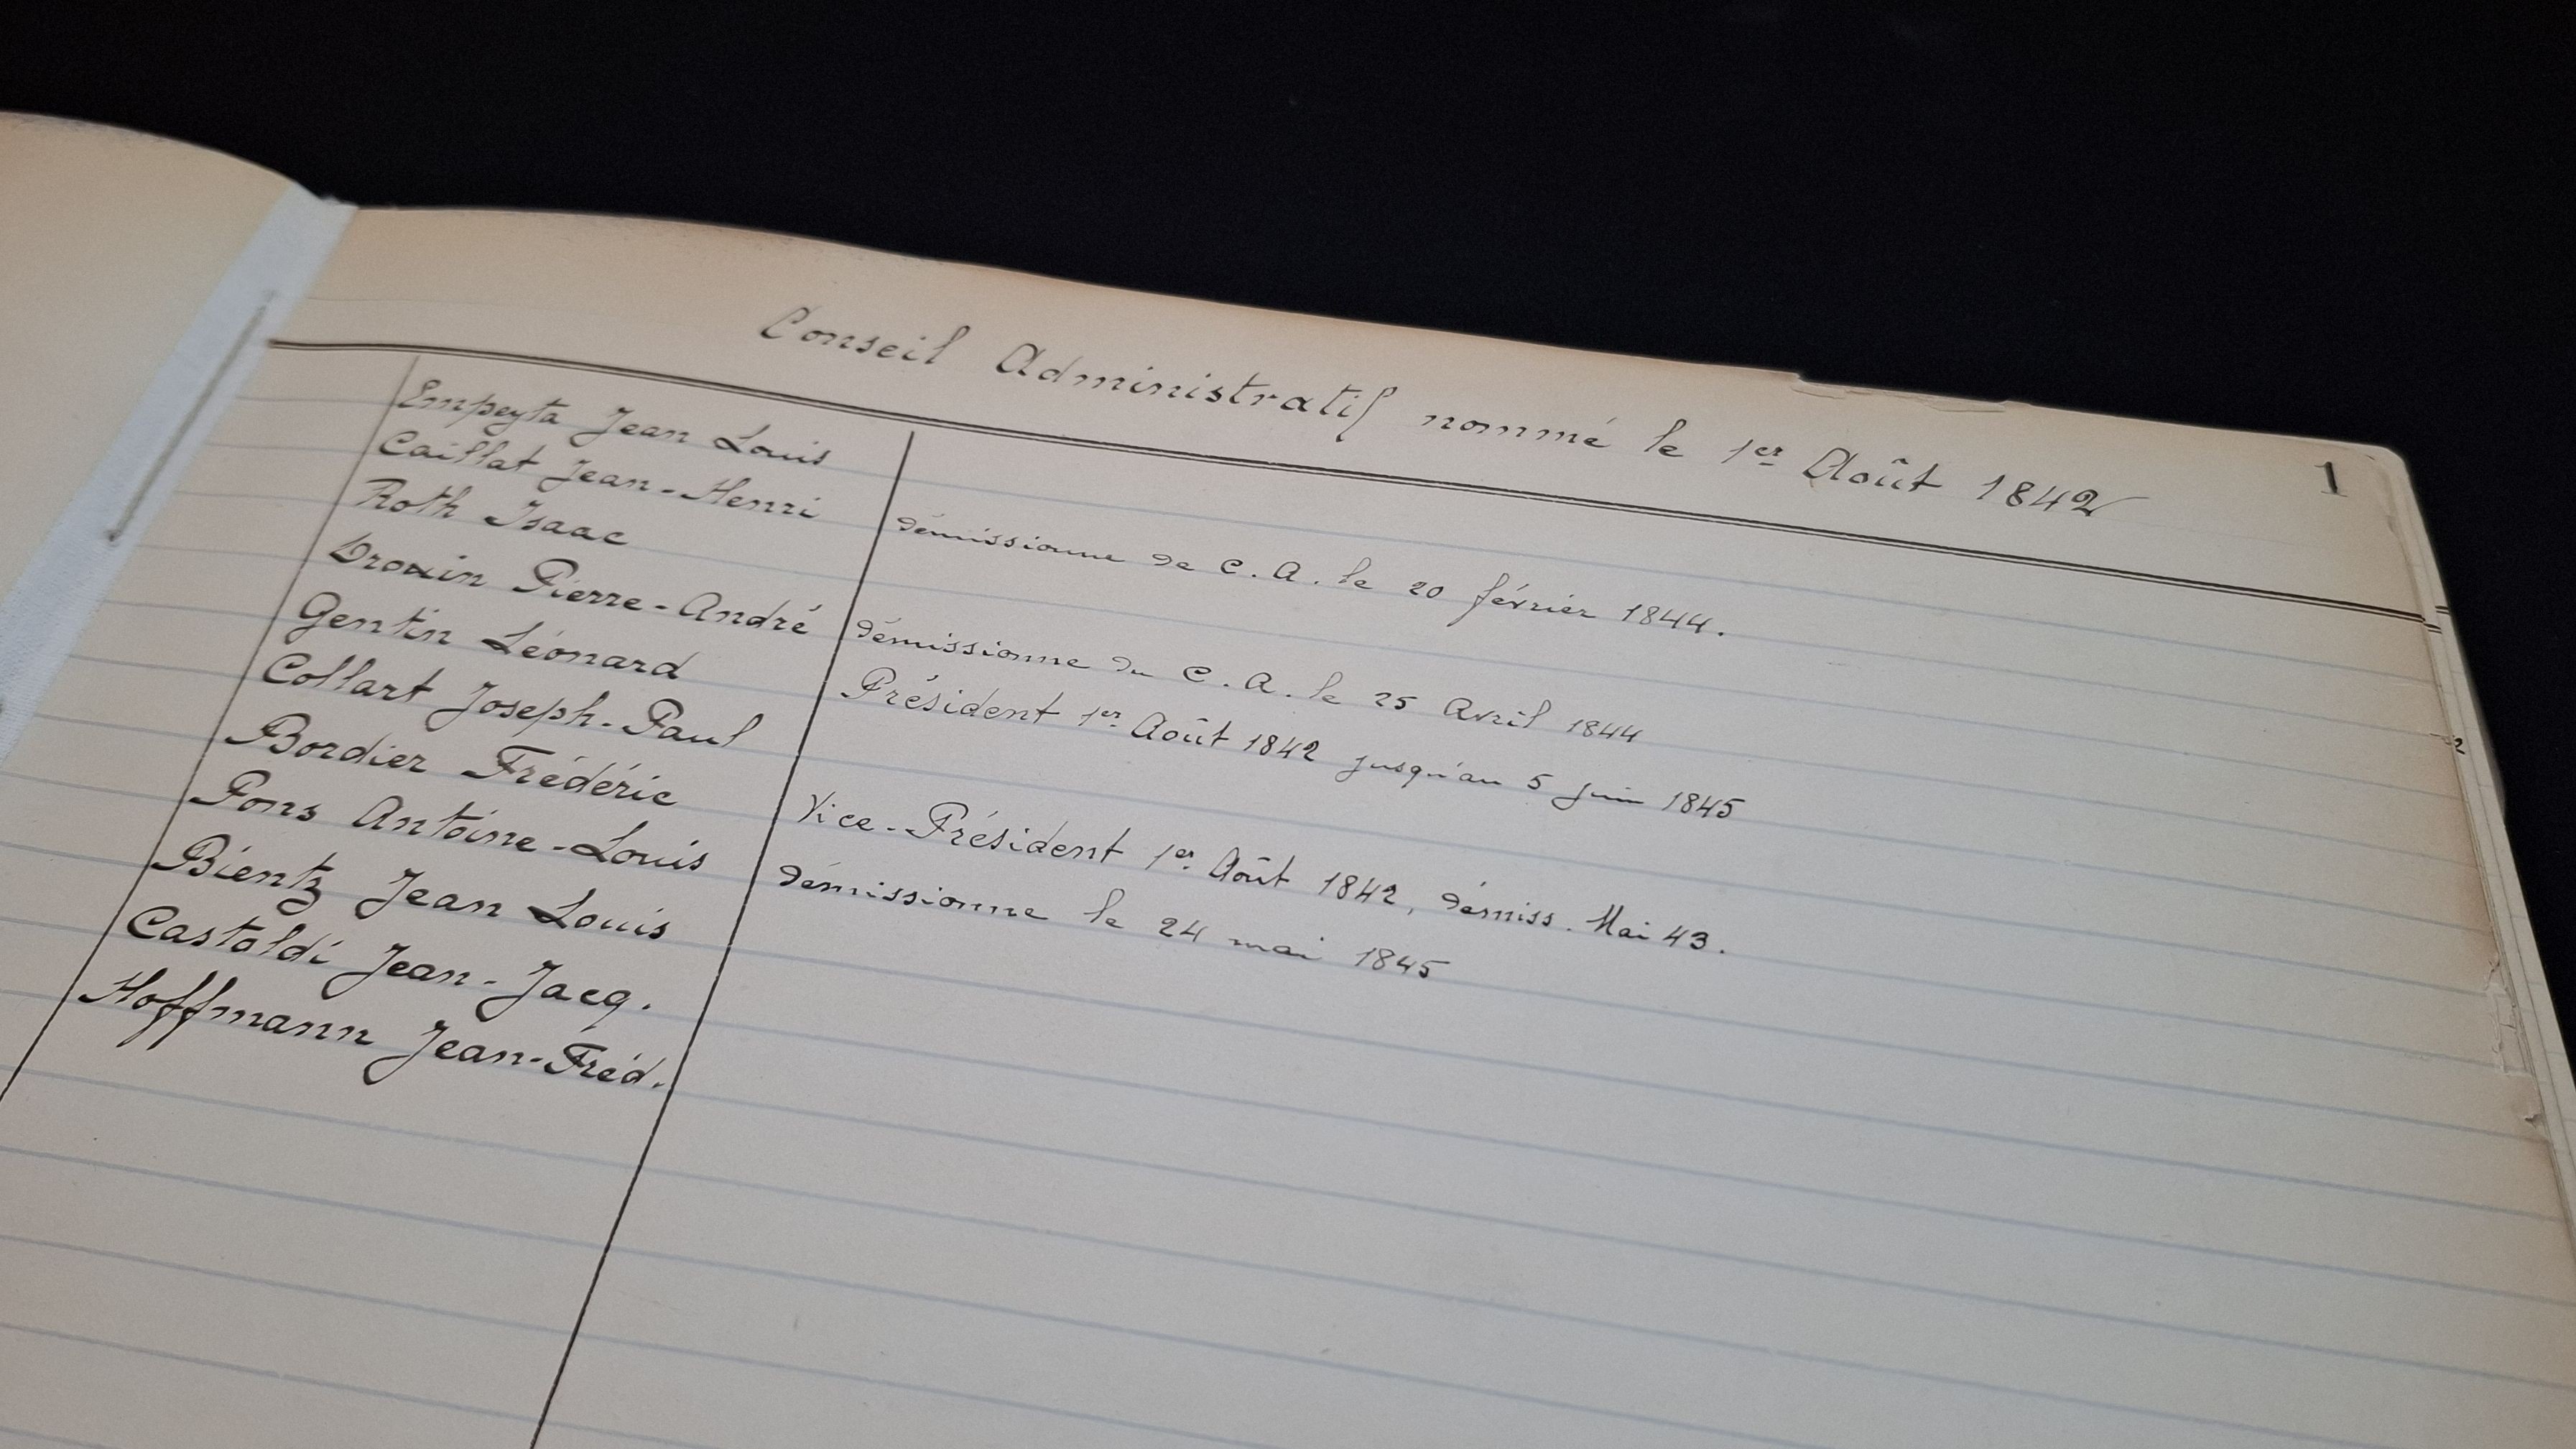 Conseil Administratif nommé le 1er Août 1842
1
Empeyta Jean Louis
Caillat Jean-Henri démissionne de C.A. le 20 février 1844.
Roth Isaac
Pierre-André démissionne du C.A. le 25 Avril 1844
Gentin Léonard Président 1er Août 1842 jusqu'au 5 juin 1845
Collart Joseph-Paul
Bordier Frédéric Vice-Président 1er Août 1842, démiss. Mai 43.
Pons Antoine-Louis démissionne le 24 mai 1845
Bientz Jean Louis
Castoldi Jean-Jacq.
Hoffmann Jean-Fréd.
2